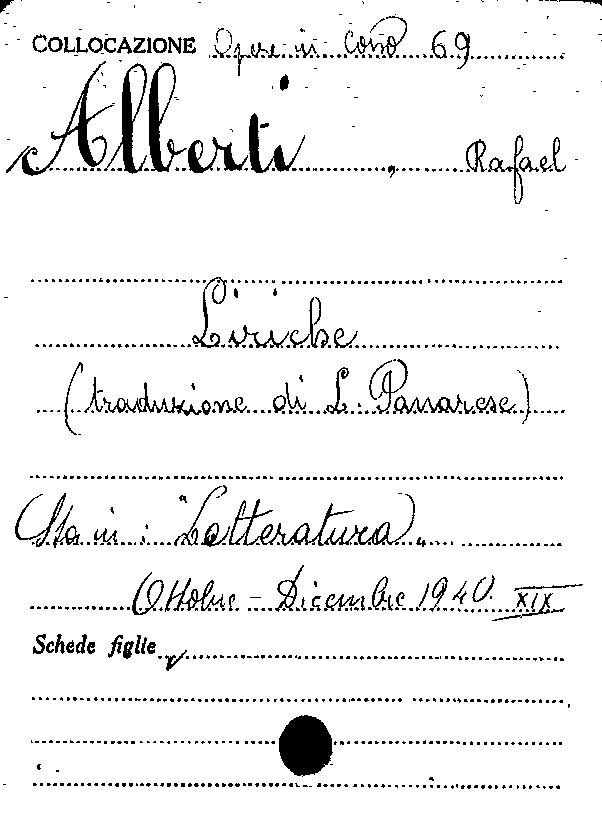 COLLOCAZIONE Opere in Corso 69
Alberti, Rafael
Liriche
(traduzione di L. Panarese)
(Sta in: "Letteratura)„
Ottobre - Dicembre 1940. XIX
Schede figlie